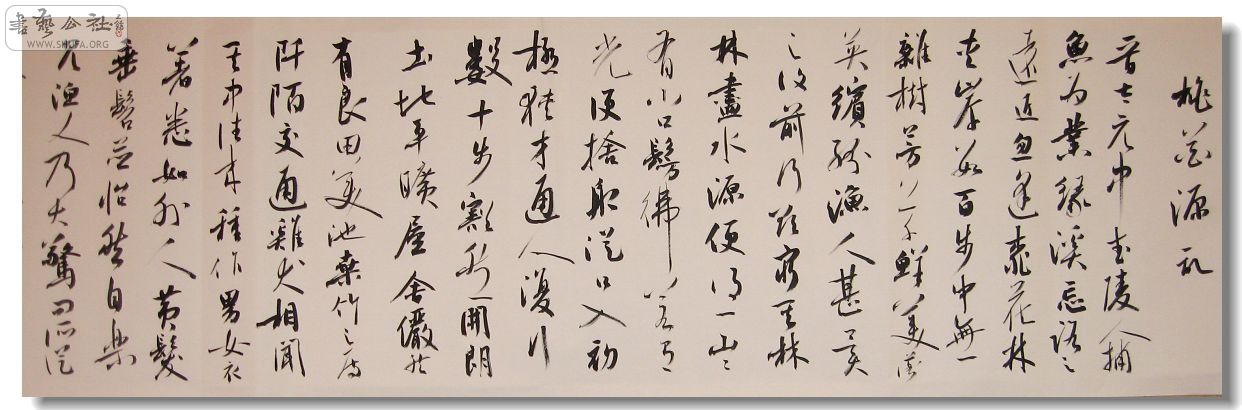 書藝公社
WWW.SHUFA.ORG
桃花源記
晉太元中武陵人捕
魚為業緣溪忘路之
遠近忽逢桃花林
夾岸數百步中無一
雜樹芳草鮮美落
英繽紛漁人甚異
之復前行欲窮其林
林盡水源便得一山山
有小口髣彿若有
光便捨船從口入初
極狹才通人復行
數十步豁然開朗
土地平曠屋舍儼然
有良田美池桑竹之屬
阡陌交通雞犬相聞
其中往來種作男女衣
著悉如外人黃髮
垂髫並怡然自樂
見漁人乃大驚問所從